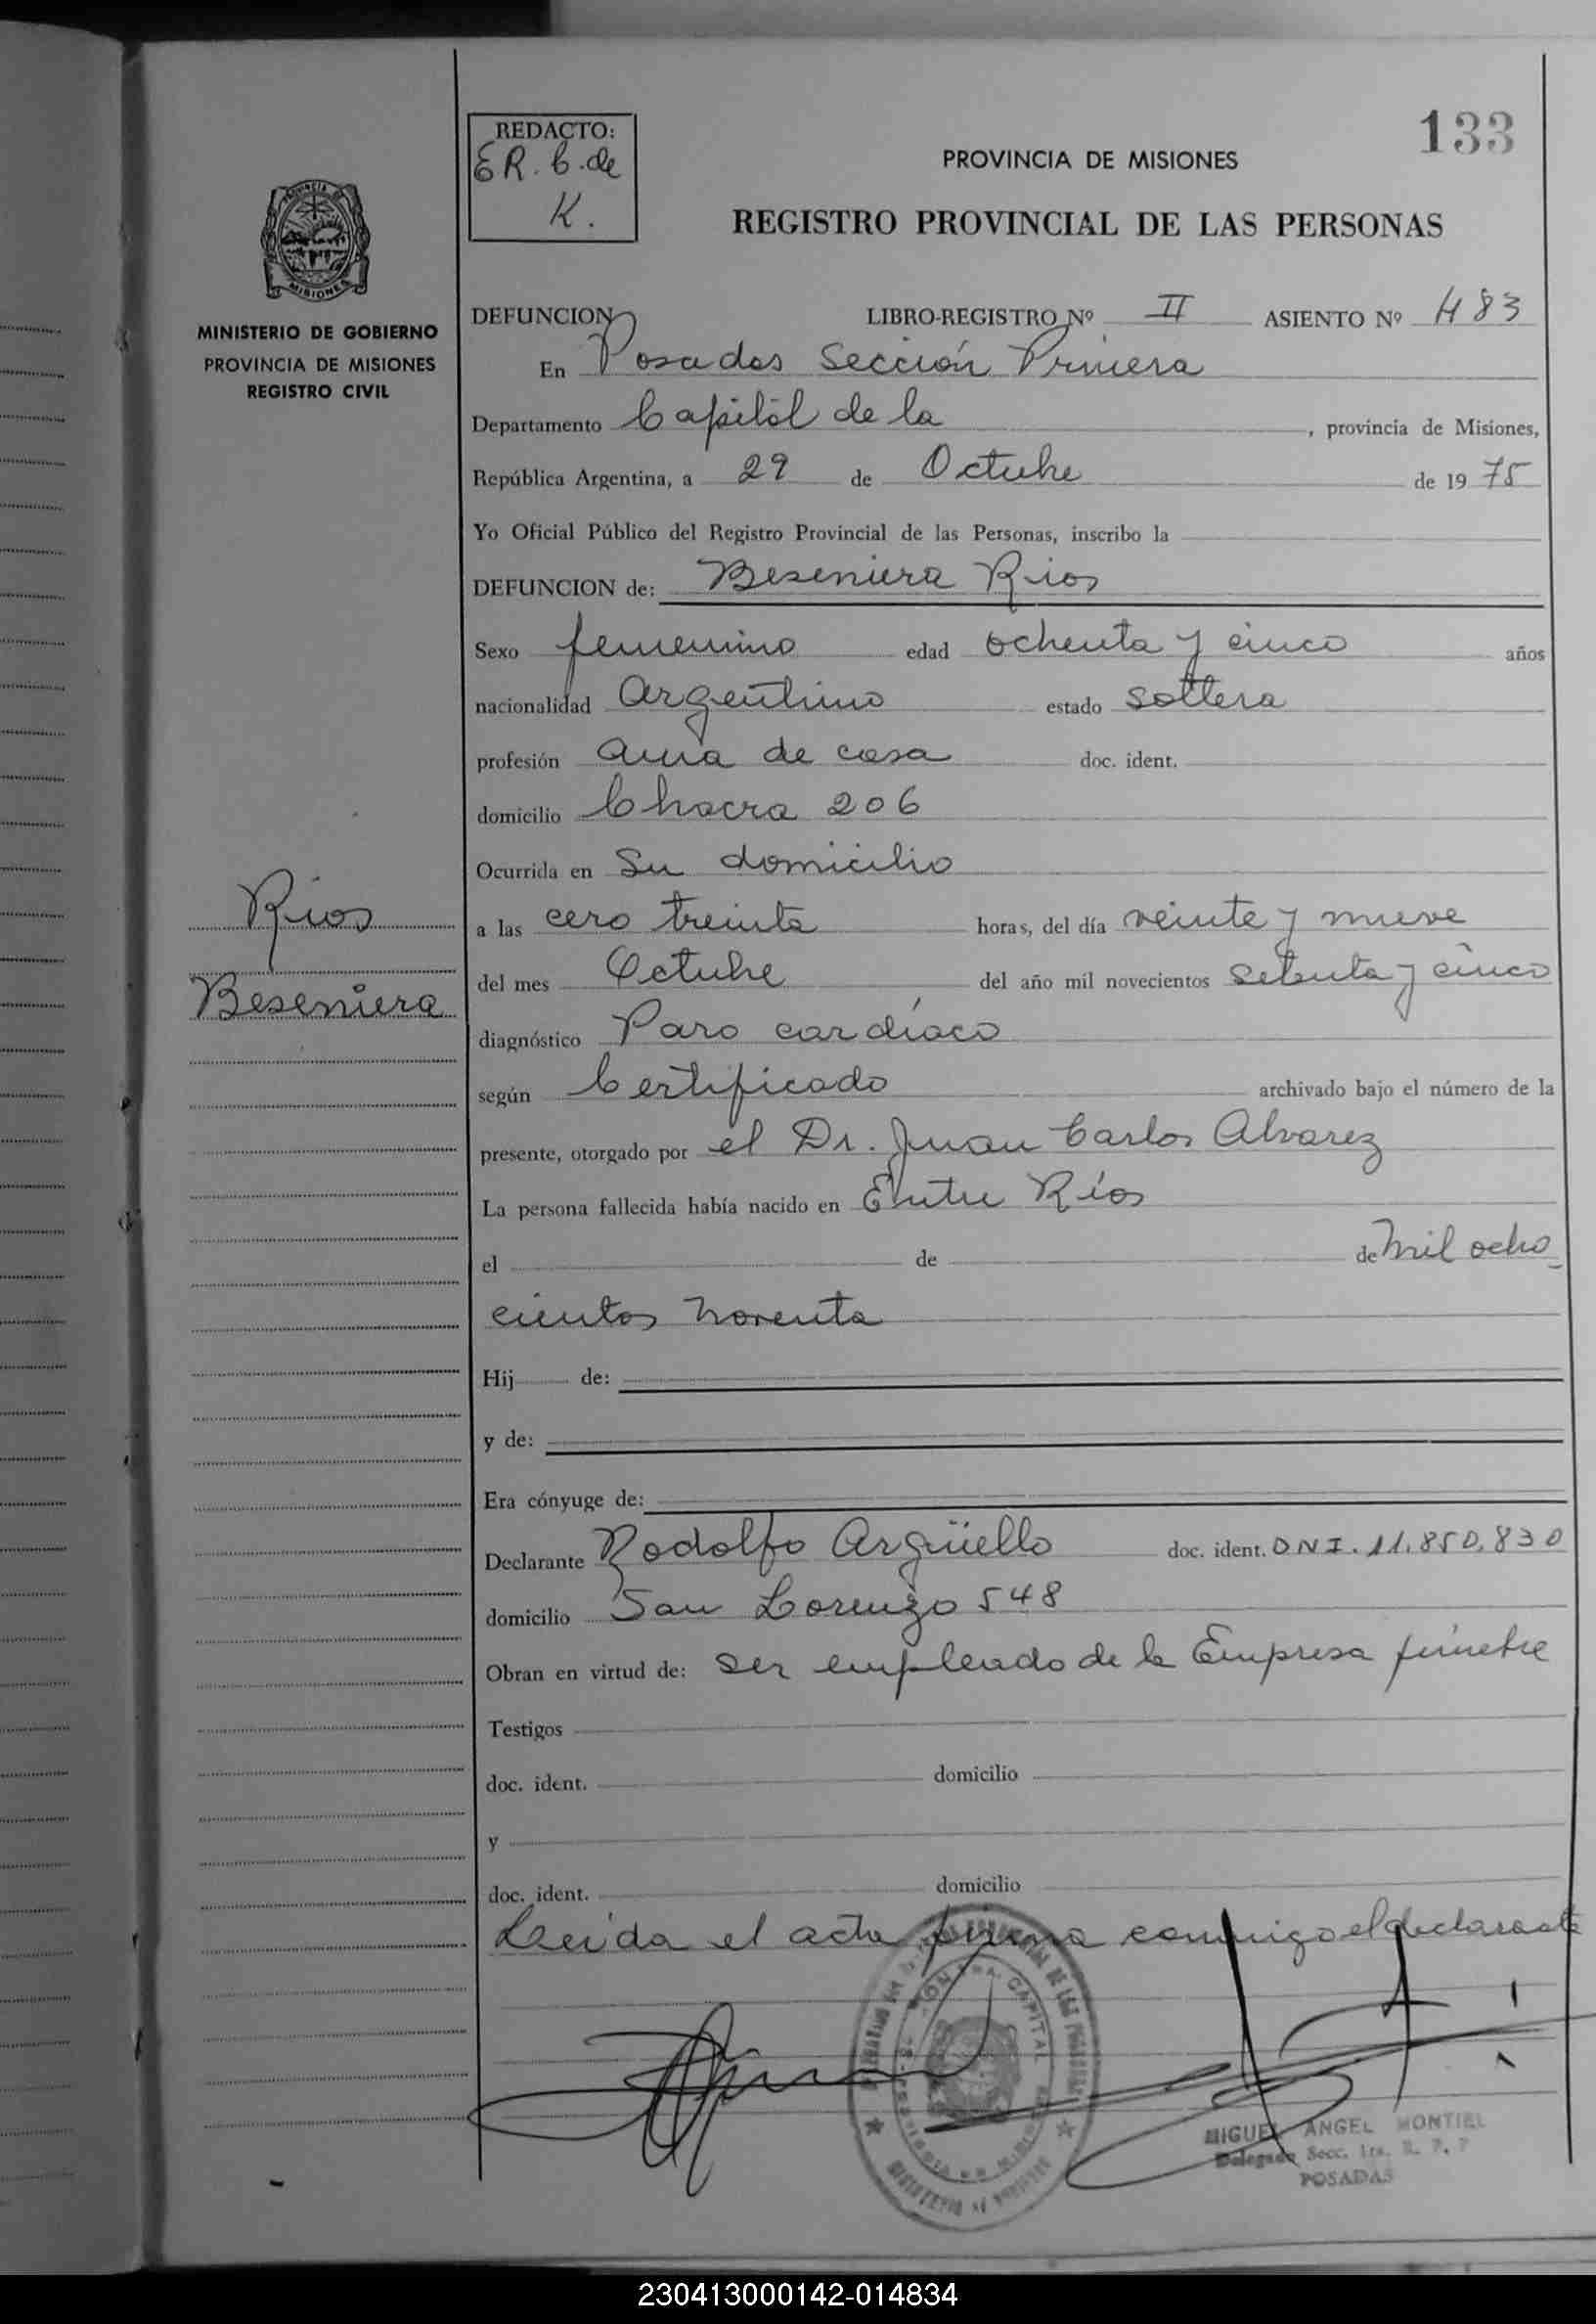 133
REDACTO:
E R. C. de
K.
PROVINCIA DE MISIONES
REGISTRO PROVINCIAL DE LAS PERSONAS
PROVINCIA DE
MISIONES
MINISTERIO DE GOBIERNO
PROVINCIA DE MISIONES
REGISTRO CIVIL
DEFUNCION LIBRO-REGISTRO Nº II ASIENTO Nº 483
En Posadas Sección Primera
Departamento Capital de la , provincia de Misiones,
República Argentina, a 29 de Octubre de 1975
Yo Oficial Público del Registro Provincial de las Personas, inscribo la
DEFUNCION de: Beseniera Rios
Sexo femenino edad ochenta y cinco años
nacionalidad Argentino estado soltera
profesión ama de casa doc. ident.
domicilio Chacra 206
Ocurrida en Su domicilio
Rios
Beseniera
a las cero treinta horas, del día veinte y nueve
del mes Octubre del año mil novecientos setenta y cinco
diagnóstico Paro cardíaco
según Certificado archivado bajo el número de la
presente, otorgado por el Dr. Juan Carlos Alvarez
La persona fallecida había nacido en Entre Ríos
el de de mil ocho
cientos noventa
Hij de:
y de:
Era cónyuge de:
Declarante Rodolfo Argüello doc. ident. DNI. 11.850.830
domicilio San Lorenzo 548
Obran en virtud de: ser empleado de la Empresa fúnebre
Testigos
doc. ident. domicilio
y
doc. ident. domicilio
Leida el acta firma conmigo el declarante
CAPITAL
MIGUEL ANGEL MONTIEL
Delegado Secc. 1ra. R. P. P
POSADAS
230413000142-014834